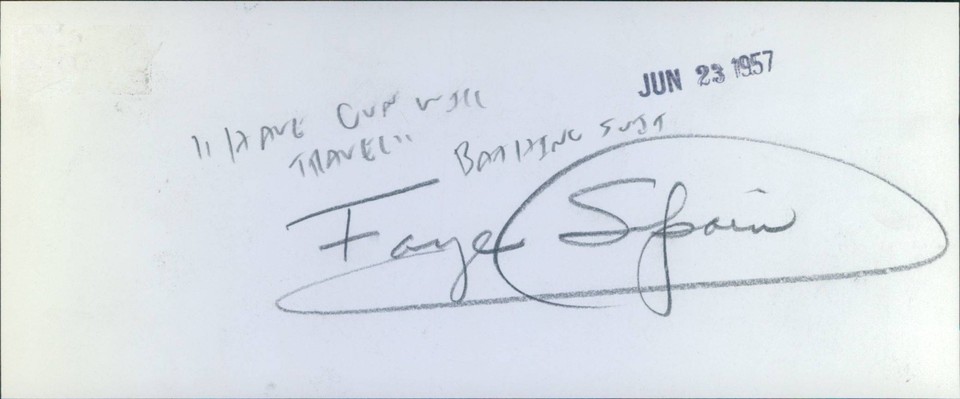 JUN 23 1957
"HAVE GUN WILL
TRAVEL"
BATHING SUIT
Faye Spain